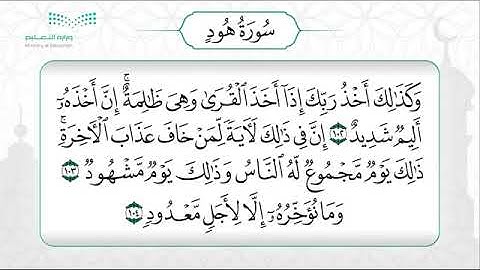 وزارة التعليم
Ministry of Education
سُورَةُ هُودٍ
وَكَذَٰلِكَ أَخْذُ رَبِّكَ إِذَآ أَخَذَ ٱلْقُرَىٰ وَهِىَ ظَـٰلِمَةٌ ۚ إِنَّ أَخْذَهُۥٓ
أَلِيمٌ شَدِيدٌ ١٠٢ إِنَّ فِى ذَٰلِكَ لَـَٔايَةً لِّمَنْ خَافَ عَذَابَ ٱلْـَٔاخِرَةِ ۚ
ذَٰلِكَ يَوْمٌ مَّجْمُوعٌ لَّهُ ٱلنَّاسُ وَذَٰلِكَ يَوْمٌ مَّشْهُودٌ ١٠٣
وَمَا نُؤَخِّرُهُۥٓ إِلَّا لِأَجَلٍ مَّعْدُودٍ ١٠٤